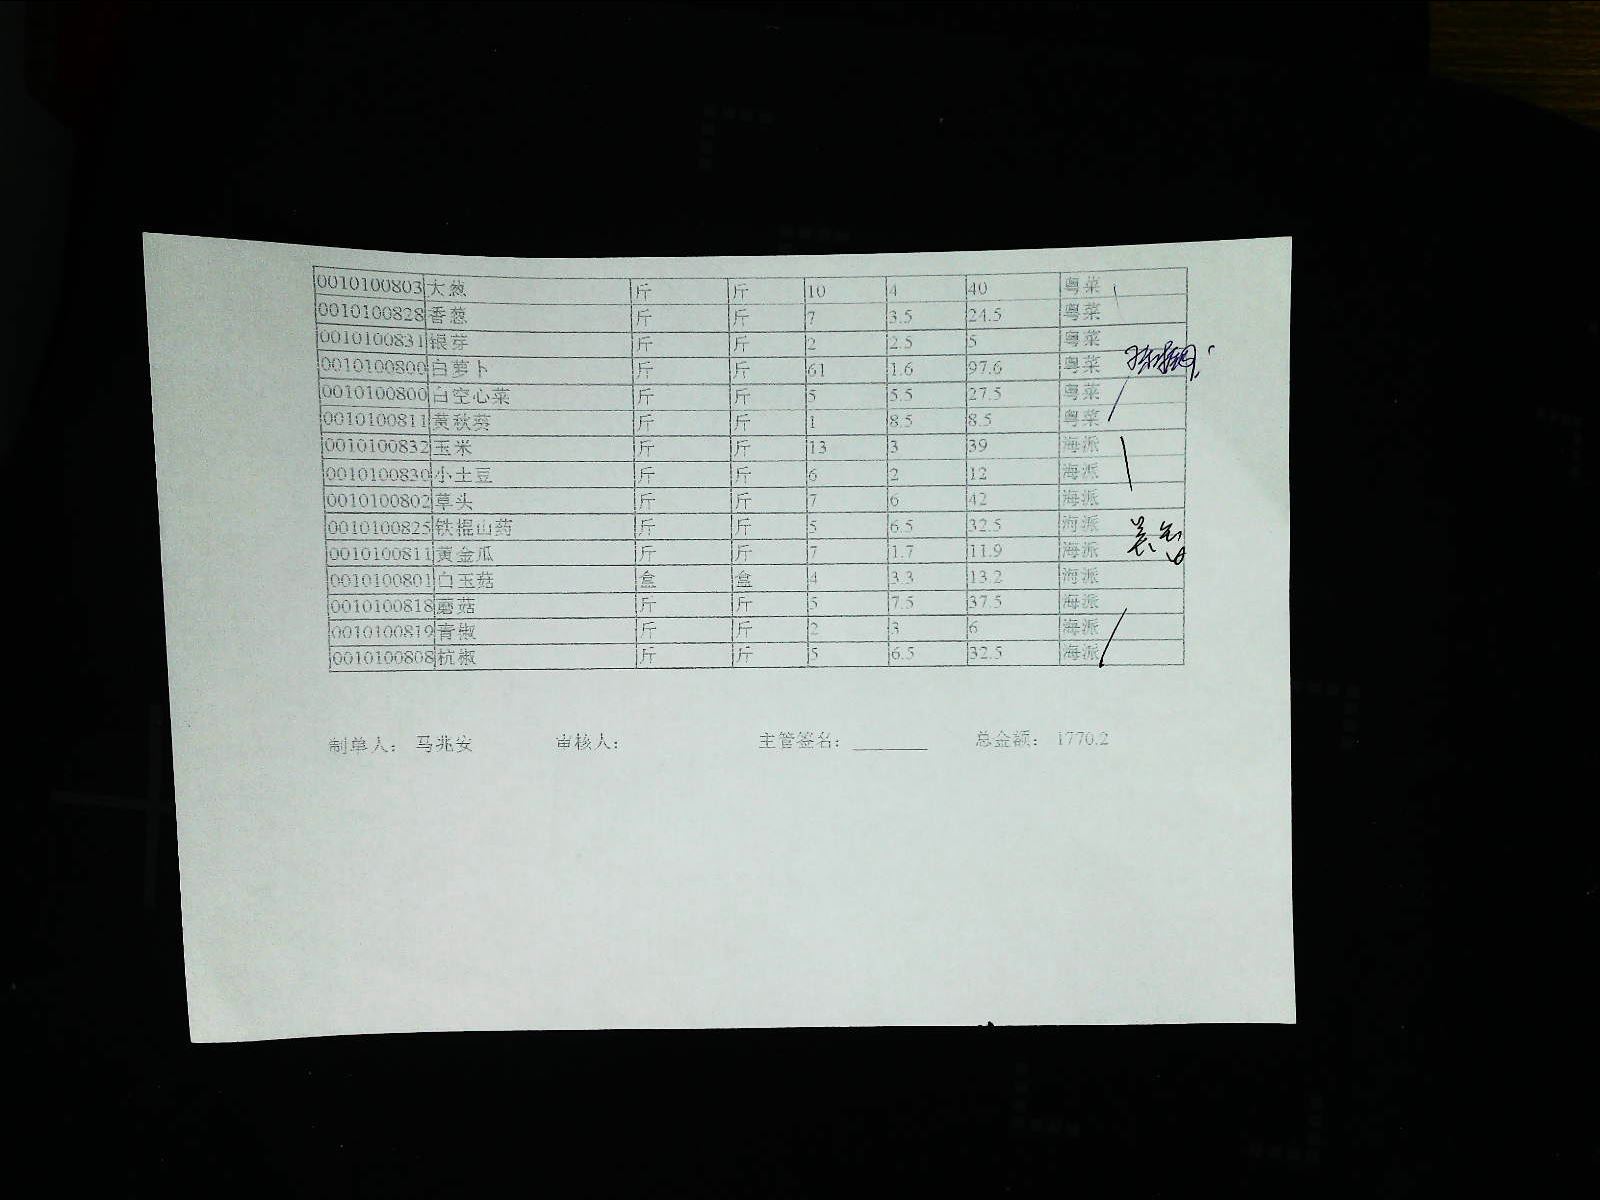 0010100803 大葱 斤 斤 10 4 40 粤菜
0010100828 香葱 斤 斤 7 3.5 24.5 粤菜
0010100831 银芽 斤 斤 2 2.5 5 粤菜
0010100800 白萝卜 斤 斤 61 1.6 97.6 粤菜
0010100800 白空心菜 斤 斤 5 5.5 27.5 粤菜
0010100811 黄秋葵 斤 斤 1 8.5 8.5 粤菜
0010100832 玉米 斤 斤 13 3 39 海派
0010100830 小土豆 斤 斤 6 2 12 海派
0010100802 草头 斤 斤 7 6 42 海派
0010100825 铁棍山药 斤 斤 5 6.5 32.5 海派
0010100811 黄金瓜 斤 斤 7 1.7 11.9 海派
0010100801 白玉菇 盒 盒 4 3.3 13.2 海派
0010100818 蘑菇 斤 斤 5 7.5 37.5 海派
0010100819 青椒 斤 斤 2 3 6 海派
0010100808 杭椒 斤 斤 5 6.5 32.5 海派
制单人： 马兆安 审核人： 主管签名： 总金额： 1770.2